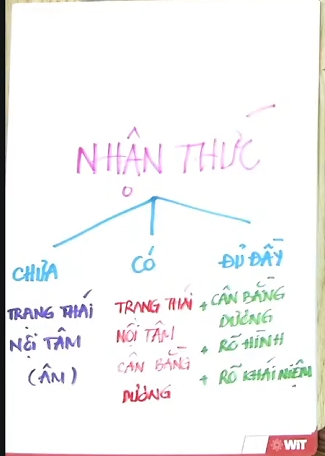 NHẬN THỨC
CHƯA
CÓ
ĐỦ ĐẦY
TRẠNG THÁI
NỘI TÂM
(ÂM)
TRẠNG THÁI
NỘI TÂM
CÂN BẰNG
DƯƠNG
+ CÂN BẰNG
DƯƠNG
+ RÕ HÌNH
+ RÕ KHÁI NIỆM
WIT